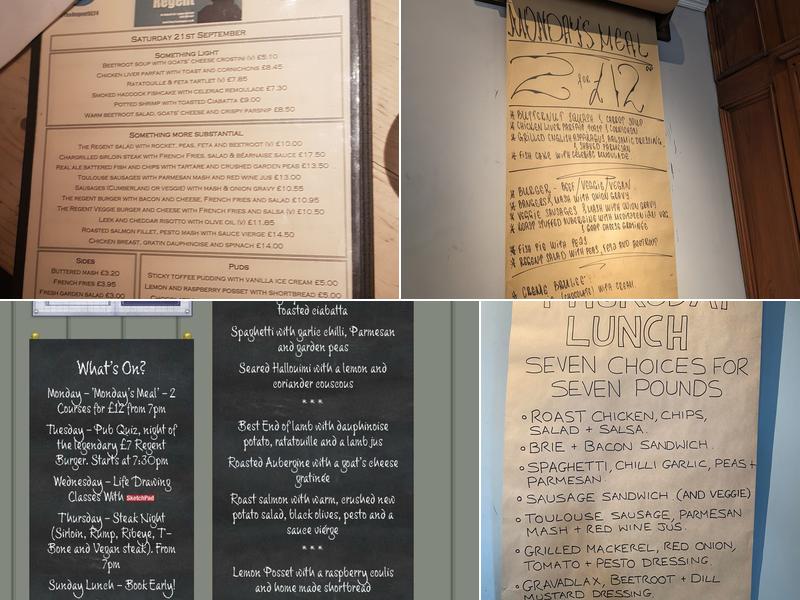 Regent
SATURDAY 21ST SEPTEMBER
SOMETHING LIGHT
BEETROOT SOUP WITH GOATS' CHEESE CROSTINI (V) £5.10
CHICKEN LIVER PARFAIT WITH TOAST AND CORNICHONS £8.45
RATATOUILLE & FETA TARTLET (V) £7.85
SMOKED HADDOCK FISHCAKE WITH CELERIAC REMOULADE £7.30
POTTED SHRIMP WITH TOASTED CIABATTA £9.00
WARM BEETROOT SALAD, GOATS' CHEESE AND CRISPY PARSNIP £8.50
SOMETHING MORE SUBSTANTIAL
THE REGENT SALAD WITH ROCKET, PEAS, FETA AND BEETROOT (V) £10.00
CHARGRILLED SIRLOIN STEAK WITH FRENCH FRIES, SALAD & BÉARNAISE SAUCE £17.50
REAL ALE BATTERED FISH AND CHIPS WITH TARTARE AND CRUSHED GARDEN PEAS £13.50
TOULOUSE SAUSAGES WITH PARMESAN MASH AND RED WINE JUS £13.00
SAUSAGES (CUMBERLAND OR VEGGIE) WITH MASH & ONION GRAVY £10.55
THE REGENT BURGER WITH BACON AND CHEESE, FRENCH FRIES AND SALAD £10.95
THE REGENT VEGGIE BURGER AND CHEESE WITH FRENCH FRIES AND SALSA (V) £10.50
LEEK AND CHEDDAR RISOTTO WITH OLIVE OIL (V) £11.85
ROASTED SALMON FILLET, PESTO MASH WITH SAUCE VIERGE £14.50
CHICKEN BREAST, GRATIN DAUPHINOISE AND SPINACH £14.00
SIDES
BUTTERED MASH £3.20
FRENCH FRIES £3.95
FRESH GARDEN SALAD £3.00
PUDS
STICKY TOFFEE PUDDING WITH VANILLA ICE CREAM £5.00
LEMON AND RASPBERRY POSSET WITH SHORTBREAD £5.00
MONDAY'S MEAL
2 for £12
* BUTTERNUT SQUASH & CARROT SOUP
* CHICKEN LIVER PARFAIT TOAST & CORNICHON
* GRILLED ENGLISH ASPARAGUS, BALSAMIC DRESSING & SHAVED PARMESAN
* FISH CAKE WITH CELERIAC REMOULADE
* BURGER - BEEF/VEGGIE/VEGAN
* BANGERS & MASH WITH ONION GRAVY
* VEGGIE SAUSAGES & MASH WITH ONION GRAVY
* ROAST STUFFED AUBERGINE WITH MEDITERRANEAN VEG
& GOAT CHEESE GRATINEE
* FISH PIE WITH PEAS
* REGENT SALAD WITH PEAS, FETA AND BEETROOT
* CREME BRULEE
What's On?
Monday – 'Monday's Meal' – 2
Courses for £12 from 7pm
Tuesday – Pub Quiz, night of
the legendary £7 Regent
Burger. Starts at 7:30pm
Wednesday – Life Drawing
Classes With SketchPad
Thursday – Steak Night
(Sirloin, Rump, Ribeye, T-
Bone and Vegan steak). From
7pm
Sunday Lunch – Book Early!
Toasted ciabatta
Spaghetti with garlic chilli, Parmesan
and garden peas
Seared Hallouini with a lemon and
coriander couscous
* * *
Best End of lamb with dauphinoise
potato, ratatouille and a lamb jus
Roasted Aubergine with a goat's cheese
gratinée
Roast salmon with warm, crushed new
potato salad, black olives, pesto and a
sauce vierge
* * *
Lemon Posset with a raspberry coulis
and home made shortbread
THURSDAY
LUNCH
SEVEN CHOICES FOR
SEVEN POUNDS
ROAST CHICKEN, CHIPS,
SALAD + SALSA.
BRIE + BACON SANDWICH.
SPAGHETTI, CHILLI GARLIC, PEAS +
PARMESAN.
SAUSAGE SANDWICH (AND VEGGIE)
TOULOUSE SAUSAGE, PARMESAN
MASH + RED WINE JUS.
GRILLED MACKEREL, RED ONION,
TOMATO + PESTO DRESSING.
GRAVADLAX, BEETROOT + DILL
MUSTARD DRESSING.